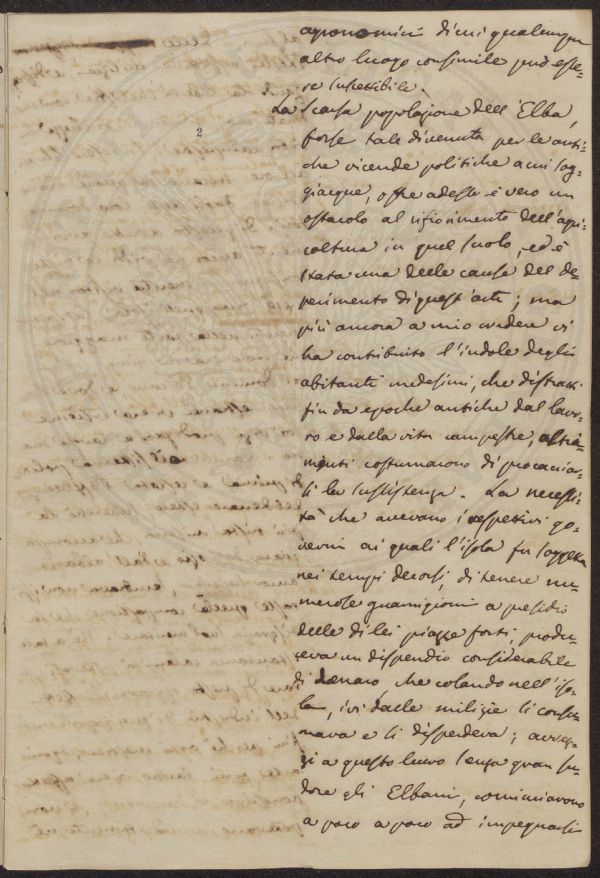 2
agronomici di cui qualunque
altro luogo consimile può esse-
re suscettibile.
La scarsa popolazione dell'Elba,
forse tale divenuta per le anti-
che vicende politiche a cui sog-
giacque, oltre adesso è vero un
ostacolo al rifiorimento dell'agri-
coltura in quel suolo, ed è
stata una delle cause del de-
perimento di quest'arte; ma
più ancora a mio credere vi
ha contribuito l'indole degli
abitanti medesimi, che distratti
fin da epoche antiche dal lavo-
ro e dalla vita campestre, altri-
menti costumarono di procacciar-
si la sussistenza. La necessi-
tà che avevano i respettivi go-
verni ai quali l'isola fu soggetta
nei tempi decorsi, di tenere nu-
merose guarnigioni a presidio
delle di lei piazze forti, produ-
ceva un dispendio considerabile
di denaro, che colando nell'iso-
la, ivi dalle milizie si consu-
mava e si disperdeva; avvez-
zi a questo lucro senza gran su-
dore gli Elbani, cominciavono
a poco a poco ad impegnarsi